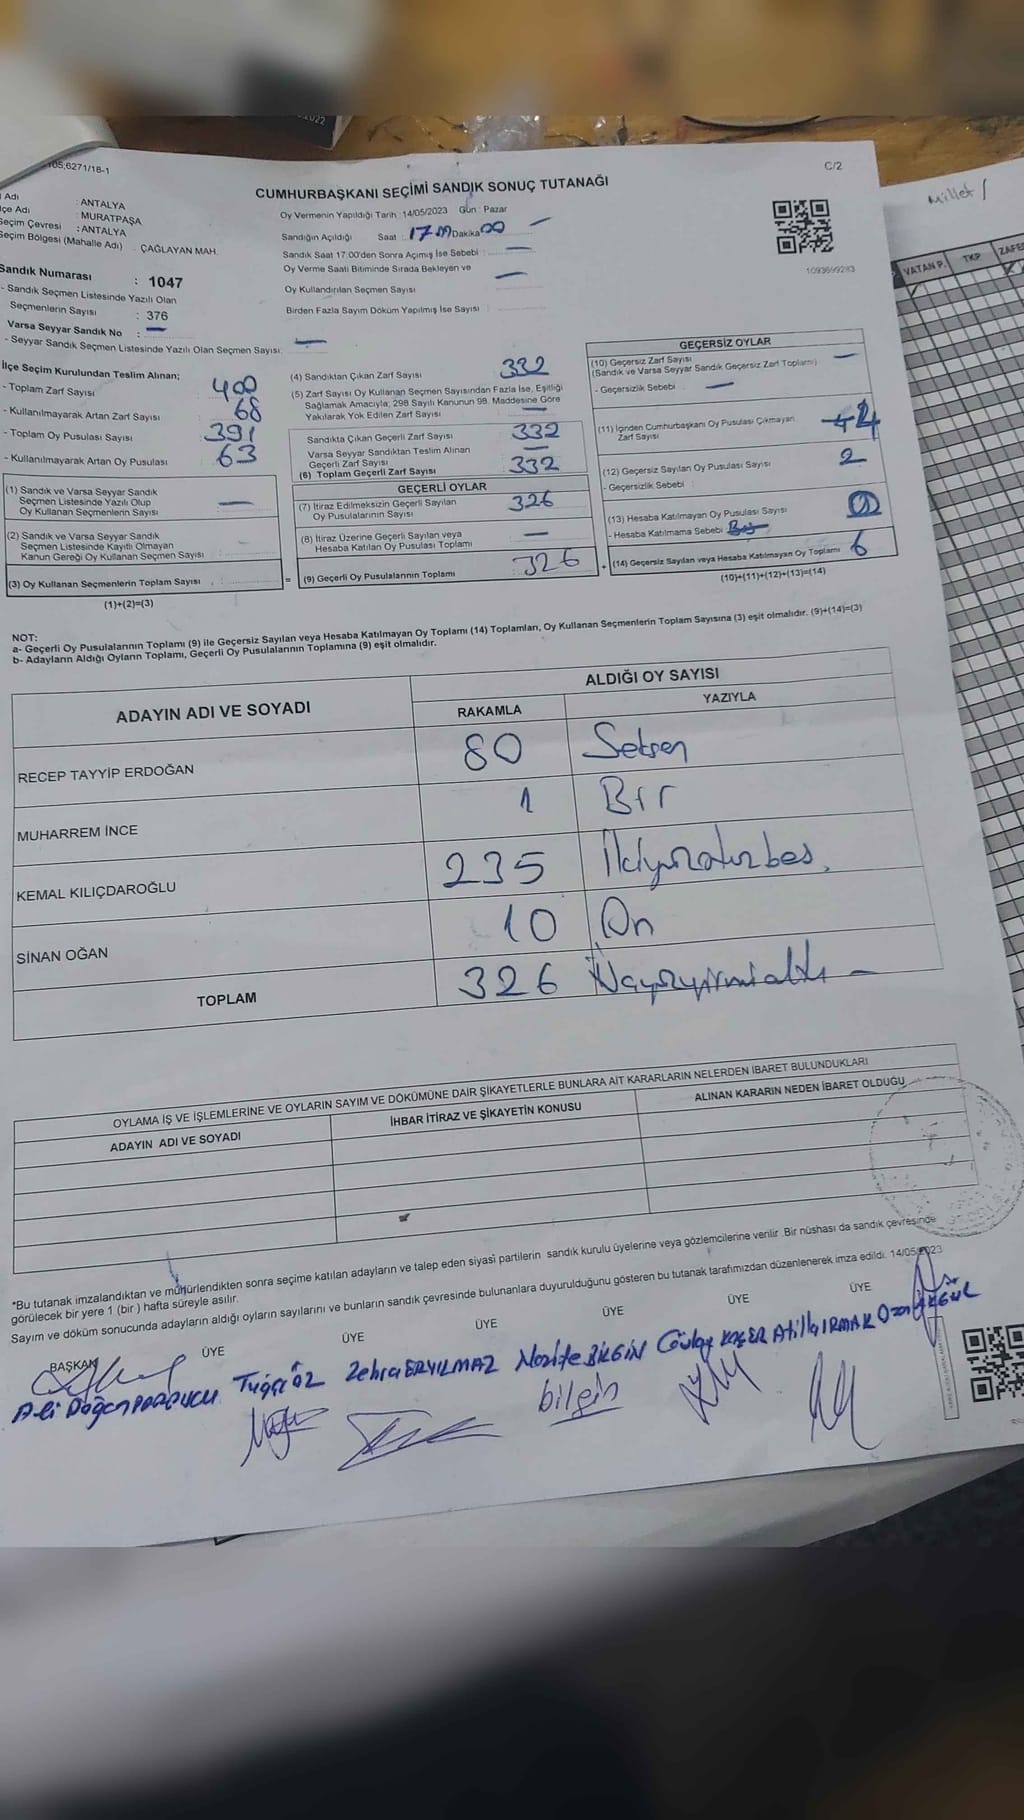 2022
105,6271/18-1
C/2
CUMHURBAŞKANI SEÇİMİ SANDIK SONUÇ TUTANAĞI
Adı : ANTALYA
lçe Adı : MURATPAŞA
Seçim Çevresi : ANTALYA
Seçim Bölgesi (Mahalle Adı) . ÇAĞLAYAN MAH.
Sandık Numarası : 1047
- Sandık Seçmen Listesinde Yazılı Olan
Seçmenlerin Sayısı : 376
Varsa Seyyar Sandık No : —
- Seyyar Sandık Seçmen Listesinde Yazılı Olan Seçmen Sayısı: —
Oy Vermenin Yapıldığı Tarih :14/05/2023 Gün : Pazar
Sandığın Açıldığı Saat : 17.00 Dakika 00 —
Sandık Saat 17:00'den Sonra Açımış İse Sebebi : —
Oy Verme Saati Bitiminde Sırada Bekleyen ve
Oy Kullandırılan Seçmen Sayısı —
Birden Fazla Sayım Döküm Yapılmış İse Sayısı :
1093699283
İlçe Seçim Kurulundan Teslim Alınan;
- Toplam Zarf Sayısı 400
- Kullanılmayarak Artan Zarf Sayısı 68
- Toplam Oy Pusulası Sayısı 391
- Kullanılmayarak Artan Oy Pusulası 63
(1) Sandık ve Varsa Seyyar Sandık
Seçmen Listesinde Yazılı Olup
Oy Kullanan Seçmenlerin Sayısı —
(2) Sandık ve Varsa Seyyar Sandık
Seçmen Listesinde Kayıtlı Olmayan
Kanun Gereği Oy Kullanan Seçmen Sayısı
(3) Oy Kullanan Seçmenlerin Toplam Sayısı
(1)+(2)=(3)
(4) Sandıktan Çıkan Zarf Sayısı 332
(5) Zarf Sayısı Oy Kullanan Seçmen Sayısından Fazla İse, Eşitliği
Sağlamak Amacıyla; 298 Sayılı Kanunun 98. Maddesine Göre
Yakılarak Yok Edilen Zarf Sayısı —
Sandıkta Çıkan Geçerli Zarf Sayısı 332
Varsa Seyyar Sandıktan Teslim Alınan
Geçerli Zarf Sayısı —
(6) Toplam Geçerli Zarf Sayısı 332
GEÇERLİ OYLAR
(7) İtiraz Edilmeksizin Geçerli Sayılan
Oy Pusulalarının Sayısı 326
(8) İtiraz Üzerine Geçerli Sayılan veya
Hesaba Katılan Oy Pusulası Toplamı —
= (9) Geçerli Oy Pusulalarının Toplamı 326
GEÇERSİZ OYLAR
(10) Geçersiz Zarf Sayısı
(Sandık ve Varsa Seyyar Sandık Geçersiz Zarf Toplamı) —
- Geçersizlik Sebebi —
(11) İçinden Cumhurbaşkanı Oy Pusulası Çıkmayan
Zarf Sayısı 4
(12) Geçersiz Sayılan Oy Pusulası Sayısı 2
- Geçersizlik Sebebi
(13) Hesaba Katılmayan Oy Pusulası Sayısı
- Hesaba Katılmama Sebebi
+ (14) Geçersiz Sayılan veya Hesaba Katılmayan Oy Toplamı 6
(10)+(11)+(12)+(13)=(14)
NOT:
a- Geçerli Oy Pusulalarının Toplamı (9) ile Geçersiz Sayılan veya Hesaba Katılmayan Oy Toplamı (14) Toplamları, Oy Kullanan Seçmenlerin Toplam Sayısına (3) eşit olmalıdır. (9)+(14)=(3)
b- Adayların Aldığı Oyların Toplamı, Geçerli Oy Pusulalarının Toplamına (9) eşit olmalıdır.
ADAYIN ADI VE SOYADI
ALDIĞI OY SAYISI
RAKAMLA YAZIYLA
RECEP TAYYİP ERDOĞAN 80 Seksen
MUHARREM İNCE 1 Bir
KEMAL KILIÇDAROĞLU 235 İkiyüzotuzbes
SİNAN OĞAN 10 On
TOPLAM 326 Üçyüzyirmialtı —
OYLAMA İŞ VE İŞLEMLERİNE VE OYLARIN SAYIM VE DÖKÜMÜNE DAİR ŞİKAYETLERLE BUNLARA AİT KARARLARIN NELERDEN İBARET BULUNDUKLARI
ADAYIN ADI VE SOYADI
İHBAR İTİRAZ VE ŞİKAYETİN KONUSU
ALINAN KARARIN NEDEN İBARET OLDUĞU
*Bu tutanak imzalandıktan ve mühürlendikten sonra seçime katılan adayların ve talep eden siyasi partilerin sandık kurulu üyelerine veya gözlemcilerine verilir. Bir nüshası da sandık çevresinde
görülecek bir yere 1 (bir ) hafta süreyle asılır.
Sayım ve döküm sonucunda adayların aldığı oyların sayılarını ve bunların sandık çevresinde bulunanlara duyurulduğunu gösteren bu tutanak tarafımızdan düzenlenerek imza edildi. 14/05/2023
BAŞKAN ÜYE ÜYE ÜYE ÜYE ÜYE ÜYE
Ali Doğan PARPUCU Tuğçe ÖZ Zehra ERYILMAZ Nazife BİLGİN Gülay KESER Atilla IRMAK Ozan AKGÜL
bilgin
Millet
VATAN P. TKP ZAFE